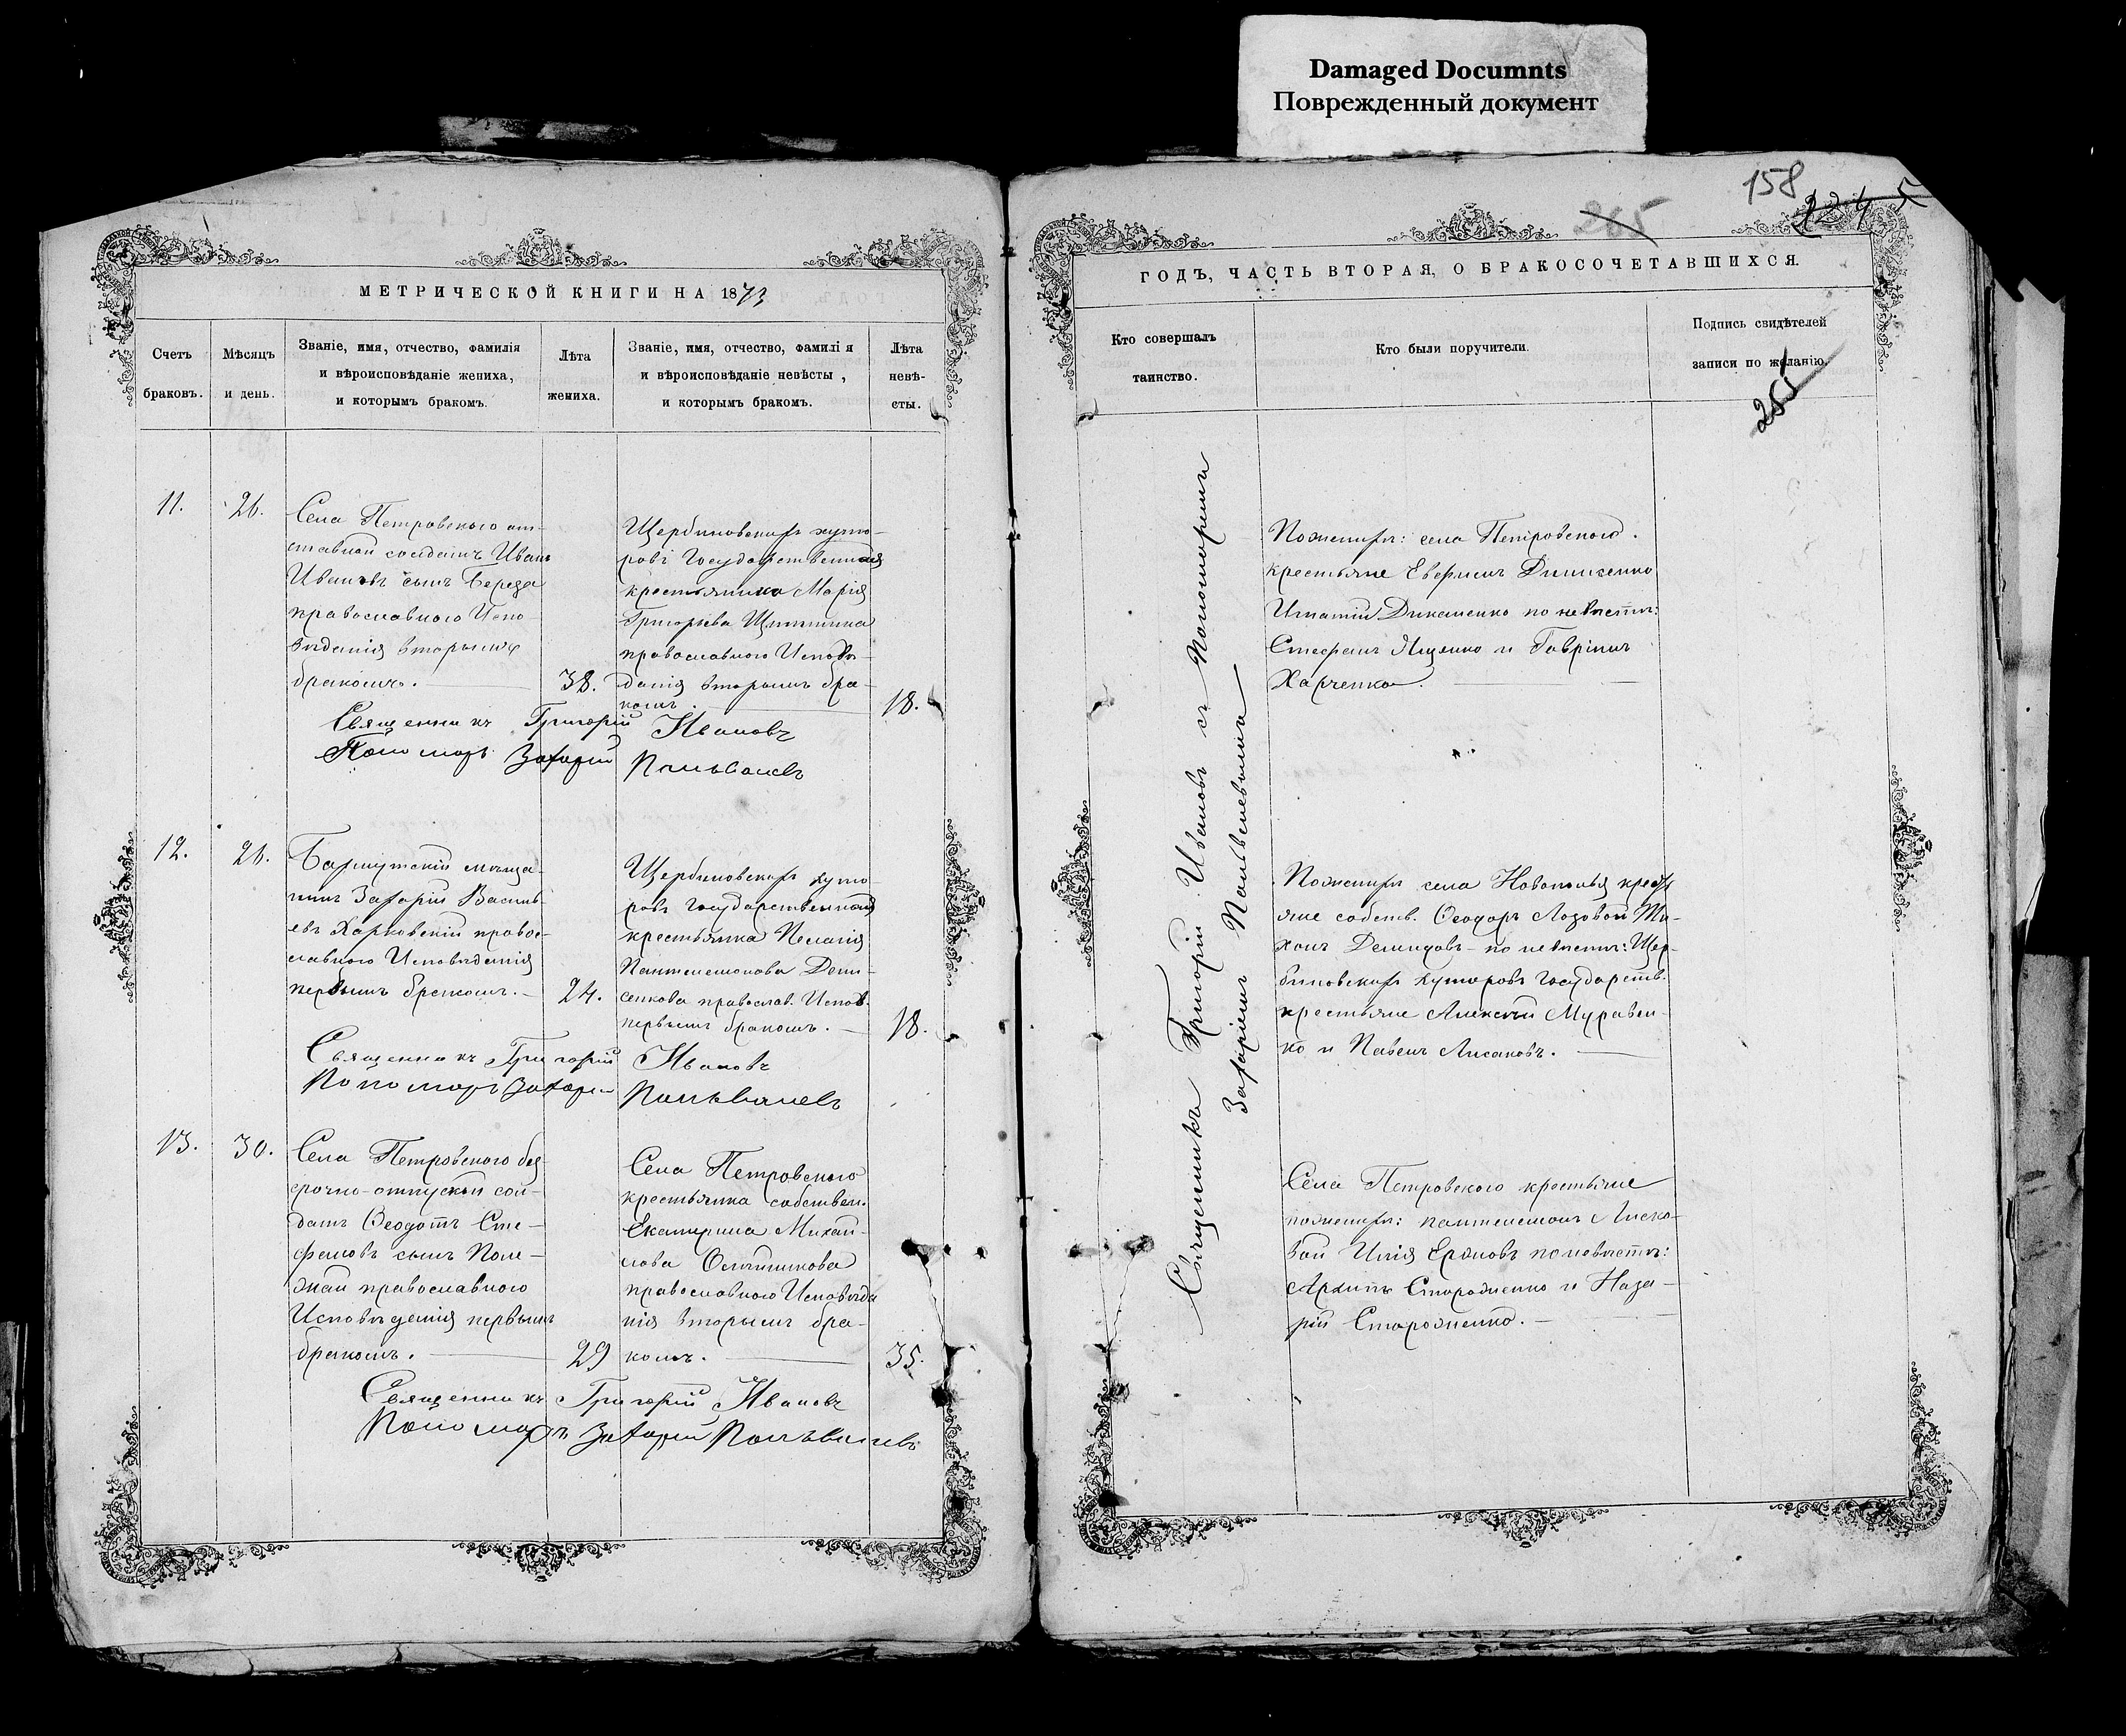 Damaged Documnts
Поврежденный документ
158
265
МЕТРИЧЕСКОЙ КНИГИ НА 1873
Счетъ браковъ.
Мѣсяцъ и день.
Званіе, имя, отчество, фамилія и вѣроисповѣданіе жениха, и которымъ бракомъ.
Лѣта жениха.
Званіе, имя, отчество, фамилія и вѣроисповѣданіе невѣсты, и которымъ бракомъ.
Лѣта невѣ-
сты.
11.
26.
Села Петровского от-
ставной солдатъ Иванъ
Ивановъ сынъ Береза
православного Испо-
вѣданія вторымъ
бракомъ.
38.
Щербиновскихъ хуто-
ровъ Государственная
крестьянка Марія
Григорьева
православного Исповѣ-
данія вторымъ бра-
комъ.
18.
Священникъ Григорій Ивановъ
Пономарь Захарій Польвалевъ
12.
26.
Бахмутскій мѣща-
нинъ Захарій Василь-
евъ Харковскій правос-
лавного Исповѣданія
первымъ бракомъ.
24.
Щербиновскихъ хуто
ровъ Государственная
крестьянка Пелагія
Пантелемонова Дени-
сенкова православ. Испов.
первымъ бракомъ.
18.
Священникъ Григорій Ивановъ
Пономарь Захарій Польвалевъ
13.
30.
Села Петровского без-
срочно-отпускной сол-
датъ Ѳеодотъ Сте-
фановъ сынъ Поле-
жай православного
Исповѣданія первымъ
бракомъ.
29
Села Петровского
крестьянка собствен.
Екатерина Михаи-
лова Олейникова
православного Исповѣда
нія вторымъ бра-
комъ.
35.
Священникъ Григорій Ивановъ
Пономарь Захарій Польвалевъ
ГОДЪ, ЧАСТЬ ВТОРАЯ, О БРАКОСОЧЕТАВШИХСЯ.
Кто совершалъ
таинство.
Кто были поручители.
Подпись свидѣтелей
записи по желанію.
265
Священникъ Григорій Ивановъ съ Пономаремъ
Захаріемъ Польвалевымъ
По женихѣ: села Петровского
крестьяне
Игнатій по невѣстѣ:
Стефанъ Яценко и Гавріилъ
Харченко.
По женихѣ села Новополья крест
яне собств. Ѳеодоръ Лозовой Ти-
хонъ Демидовъ по невѣстѣ: Щер-
биновскихъ хуторовъ Государств.
крестьяне Алексѣй Муравей-
ко и Павелъ Лисаковъ.
Села Петровского крестьяне
по женихѣ: Пантелемонъ Лиско-
вой Илія Ерховъ по невѣстѣ:
Архипъ Стороженко и Наза-
рій Стороженко.